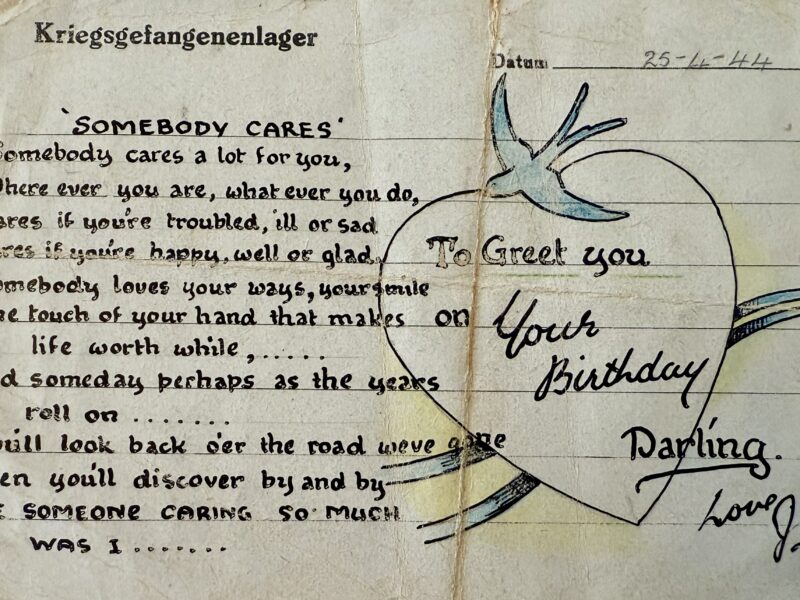 Kriegsgefangenenlager
Datum 25-4-44
'SOMEBODY CARES'
Somebody cares a lot for you,
Where ever you are, what ever you do,
ares if you're troubled, ill or sad
res if you're happy, well or glad,
omebody loves your ways, your smile
he touch of your hand that makes
life worth while,.....
d someday perhaps as the years
roll on .......
ou'll look back o'er the road we've gone
en you'll discover by and by-
E SOMEONE CARING SO MUCH
WAS I .......
To Greet you
on Your
Birthday
Darling.
Love J